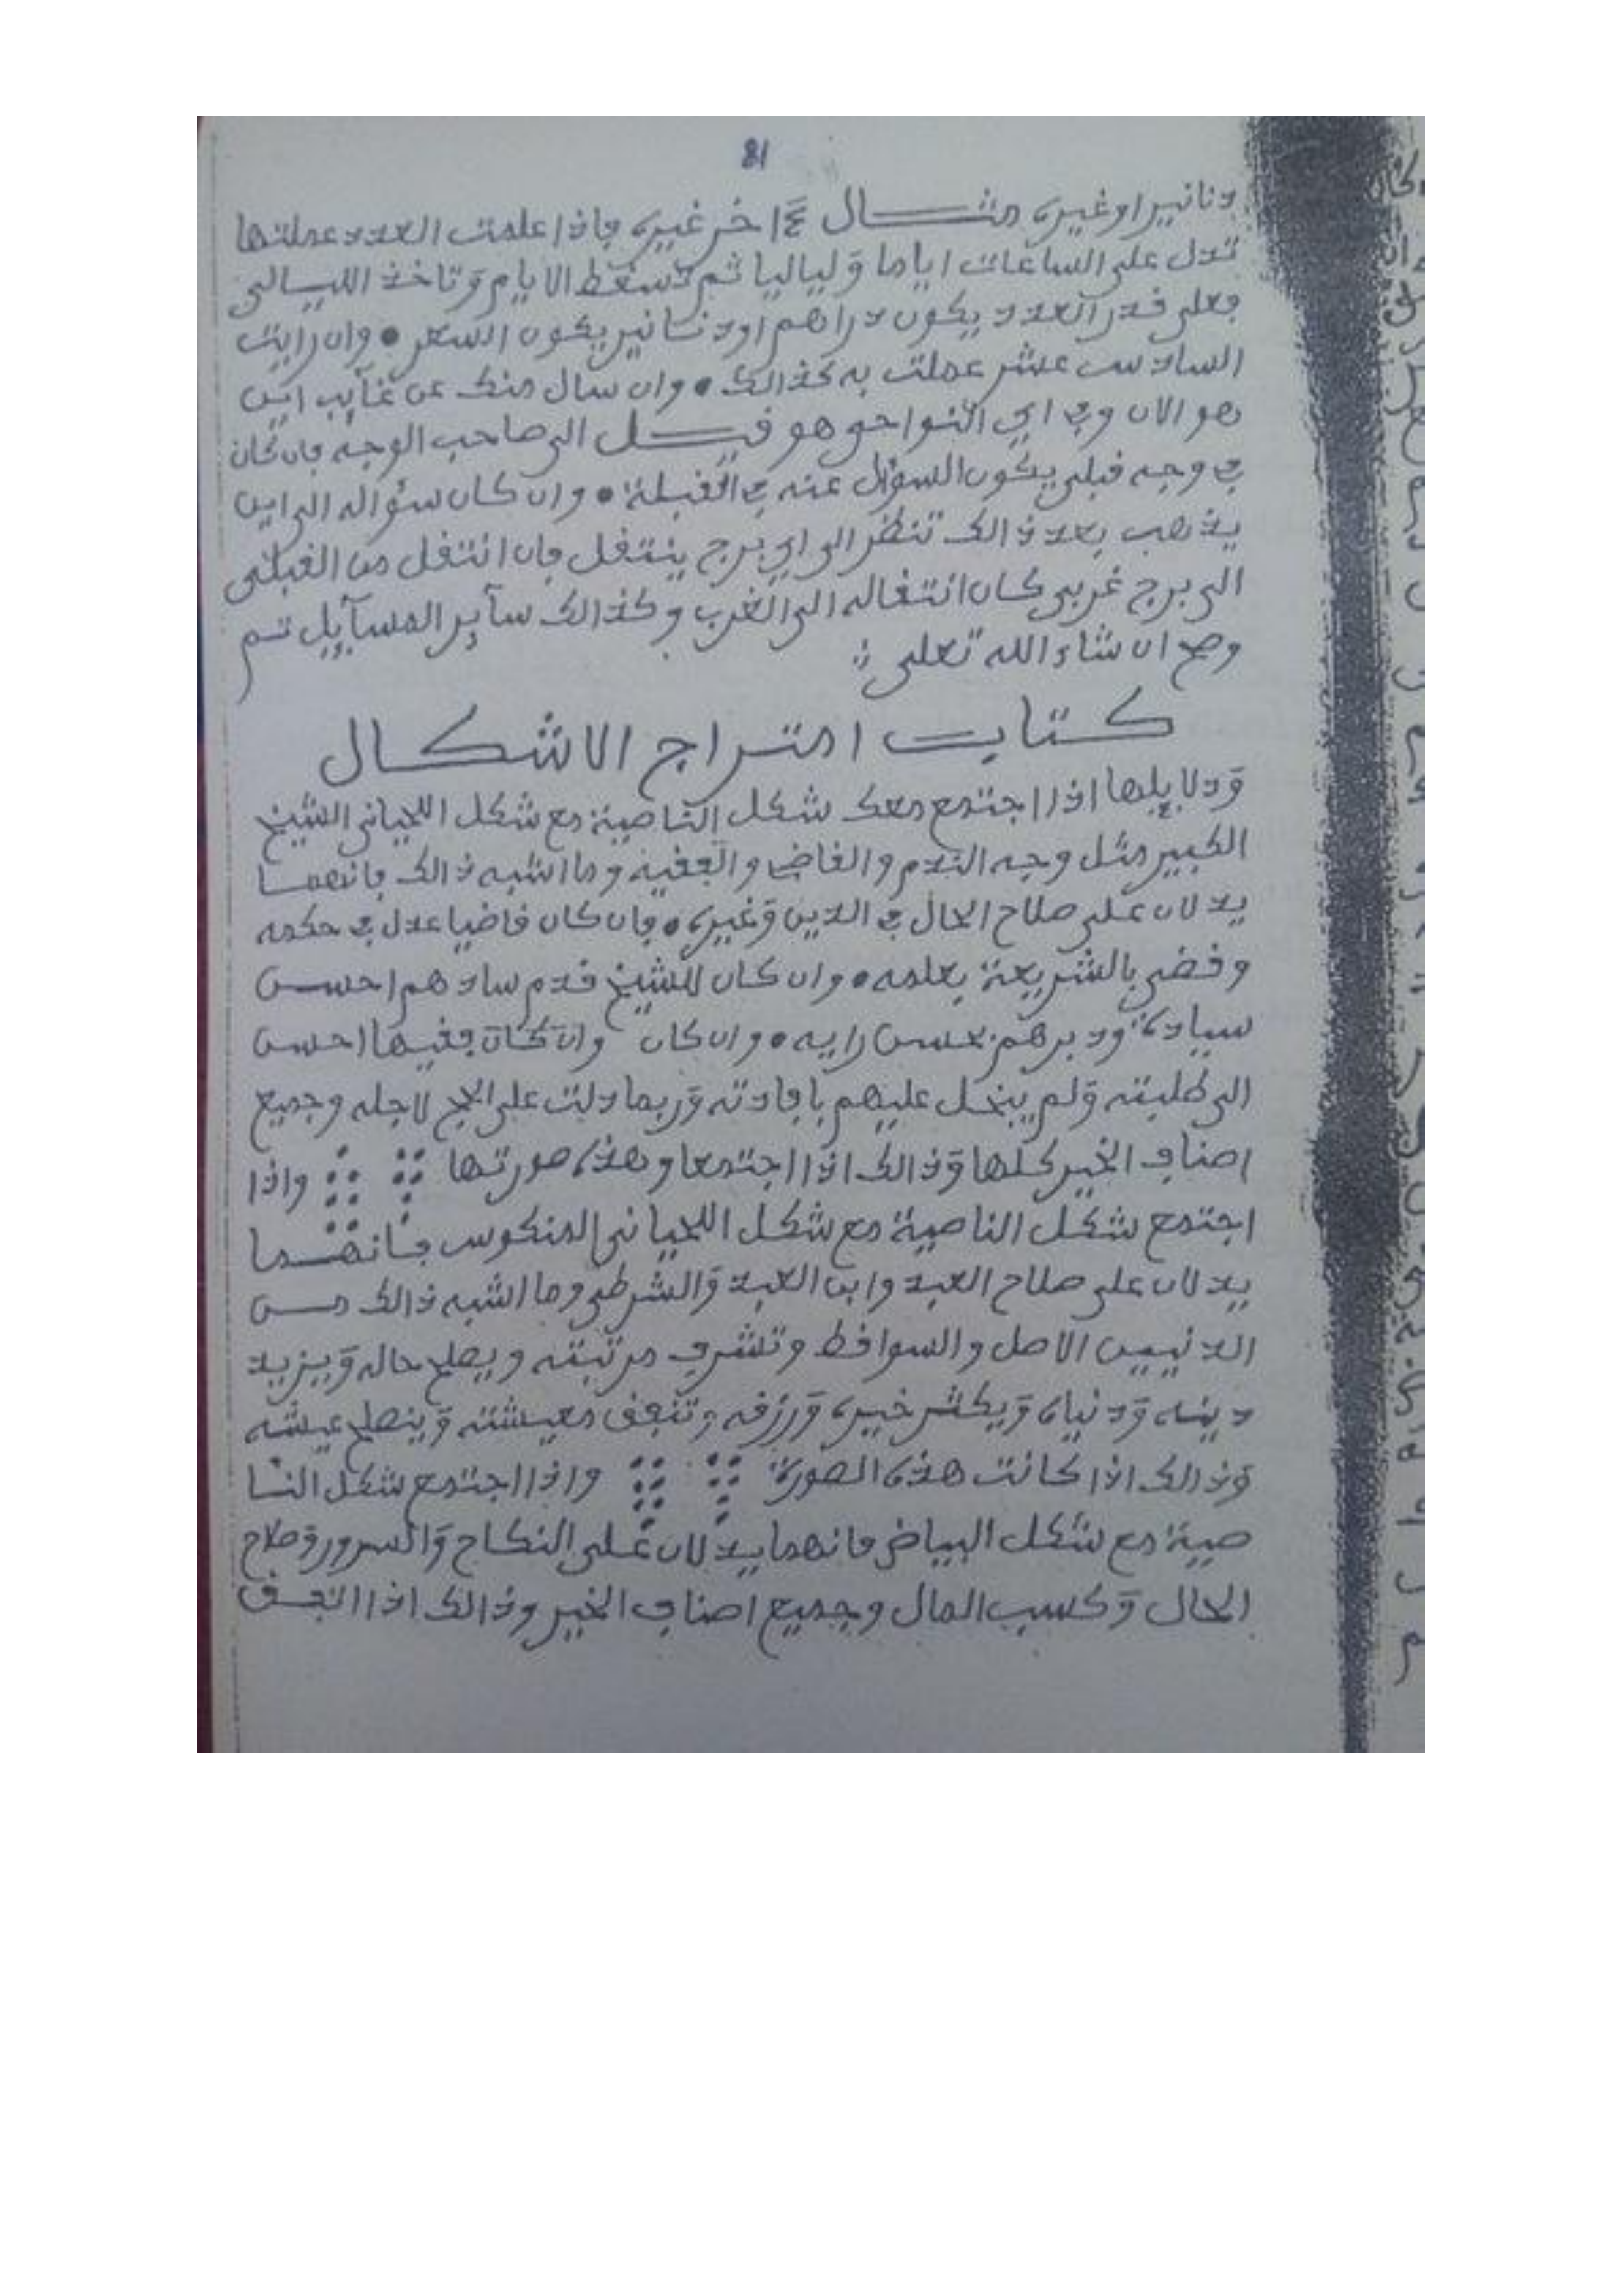 81
دنانير او غيره مثال ءاخر غيره فاذا علمت العدد عملتها
تدل على الساعات اياما وَلياليا ثم تسقط الايام وَتاخذ الليالي
فعلى قدر العدد يكون دراهم او دنانير يكون السعر • وان رايت
السادس عشر عملت به كذالك • وان سال منك عن غآيب اين
هو الان وفي اي النواحي هو قيل الى صاحب الوجه فان كان
في وجه قبلي يكون السؤال عنه في القبلة • وان كان سؤاله الى اين
يذهب بعد ذالك تنظر الى اي برج ينتقل فان انتقل من القبلي
الى برج غربي كان انتقاله الى الغرب وكذالك سآير المسآيل تم
وصح ان شاء الله تعلى
كتاب امتراج الاشكال
وَدلايلها اذا اجتمع معك شكل الناصية مع شكل اللحياني الشيخ
الكبير مثل وجه القدم والقاضي والفقيه وما اشبه ذالك فانهما
يدلان على صلاح الحال في الدين وَغيره • فان كان قاضيا عدل في حكمه
وقضى بالشريعة بعلمه • وان كان للشيخ قدم سادهم احسن
سيادة ودبرهم بحسن رايه • وان كان وان كان فقيها احسن
الى طلبته وَلم يبخل عليهم بافادته وَربما دلت على الحج لاجله وجميع
اصناف الخير كلها وَذالك اذا اجتمعا وهذه صورتها واذا
اجتمع شكل الناصية مع شكل اللحياني المنكوس فانهما
يدلان على صلاح العبد وابن العبد وَالشرطي وما اشبه ذالك من
الدنييين الاصل والسواقط وتشرف مرتبته ويصلح حاله وَيزيد
دينه وَدنياه وَيكثر خيره وَرزقه وتنفق معيشته وَينصلح عيشه
وَذالك اذا كانت هذه الصورة واذا اجتمع شكل النا
صية مع شكل البياض فانهما يدلان على النكاح وَالسرور وَصلاح
الحال وَكسب المال وجميع اصناف الخير وذالك اذا اتفق